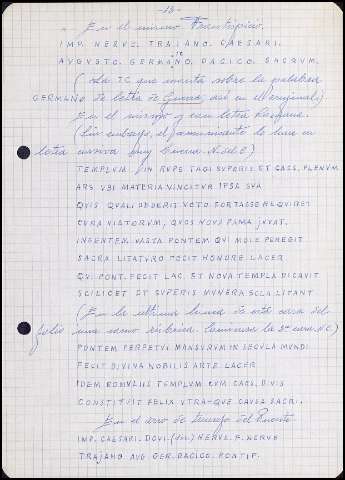 - 28 -
En el mismo Frontispicio.
IMP. NERVE. TRAJANO. CAESARI.
AUGUSTO. GERMANO. DACICO. SACRUM.
IC
(Esta IC que inserta sobre la palabra
GERMANO de letra de así en el original.)
En el mismo y con letra
(Sin embargo, el lo hace en
letra cursiva muy buena. N. del C.)
TEMPLUM IN RUPE TAGI SUPERIS ET CAES. PLENUM
ARS UBI MATERIA VINCITUR IPSA SUA
QUIS QUALI DEDERIT VOTO FORTASSE REQUIRET
CURA VIATORUM, QUOS NOVA FAMA JUVAT.
INGENTEM VASTA PONTEM QUI MOLE PEREGIT
SACRA LITATURO FECIT HONORE LACER
QUI PONT. FECIT LAC. ET NOVA TEMPLA DICAVIT
SCILICET ET SUPERIS MUNERA SOLA LITANT
(En la última línea de esta cara del
folio una como rúbrica. Comienza la 2ª cara. N.C.)
PONTEM PERPETUI MANSURUM IN SECULA MUNDI
FECIT DIVINA NOBILIS ARTE LACER
IDEM ROMULEIS TEMPLUM CUM CAES. DIVIS
CONSTITUIT FELIX UTRA-QUE CAUSA SACRI.
En el arco de triunfo del Puente
IMP. CAESARI. DOVI. (sic) NERVE. F. NERVE
TRAJANO AUG GER. DACICO. PONTIF.